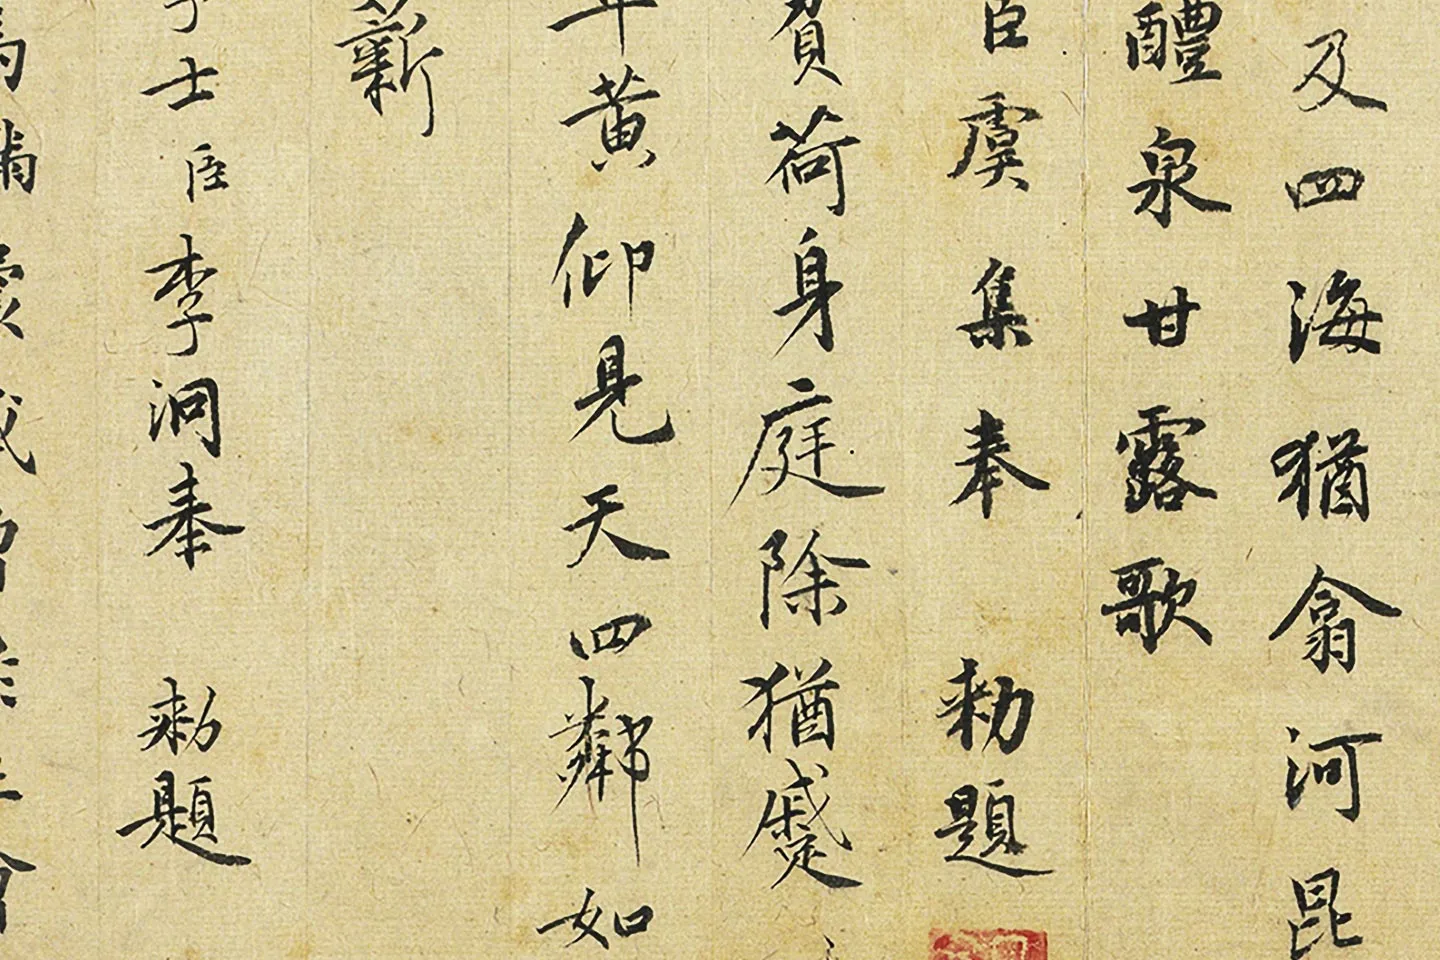 及四海猶翕河昆
醴泉甘露歌
臣虞集奉 勑題
負荷身庭除猶蹙
年黄仰見天四鄰如
薪
士臣李泂奉 勑題